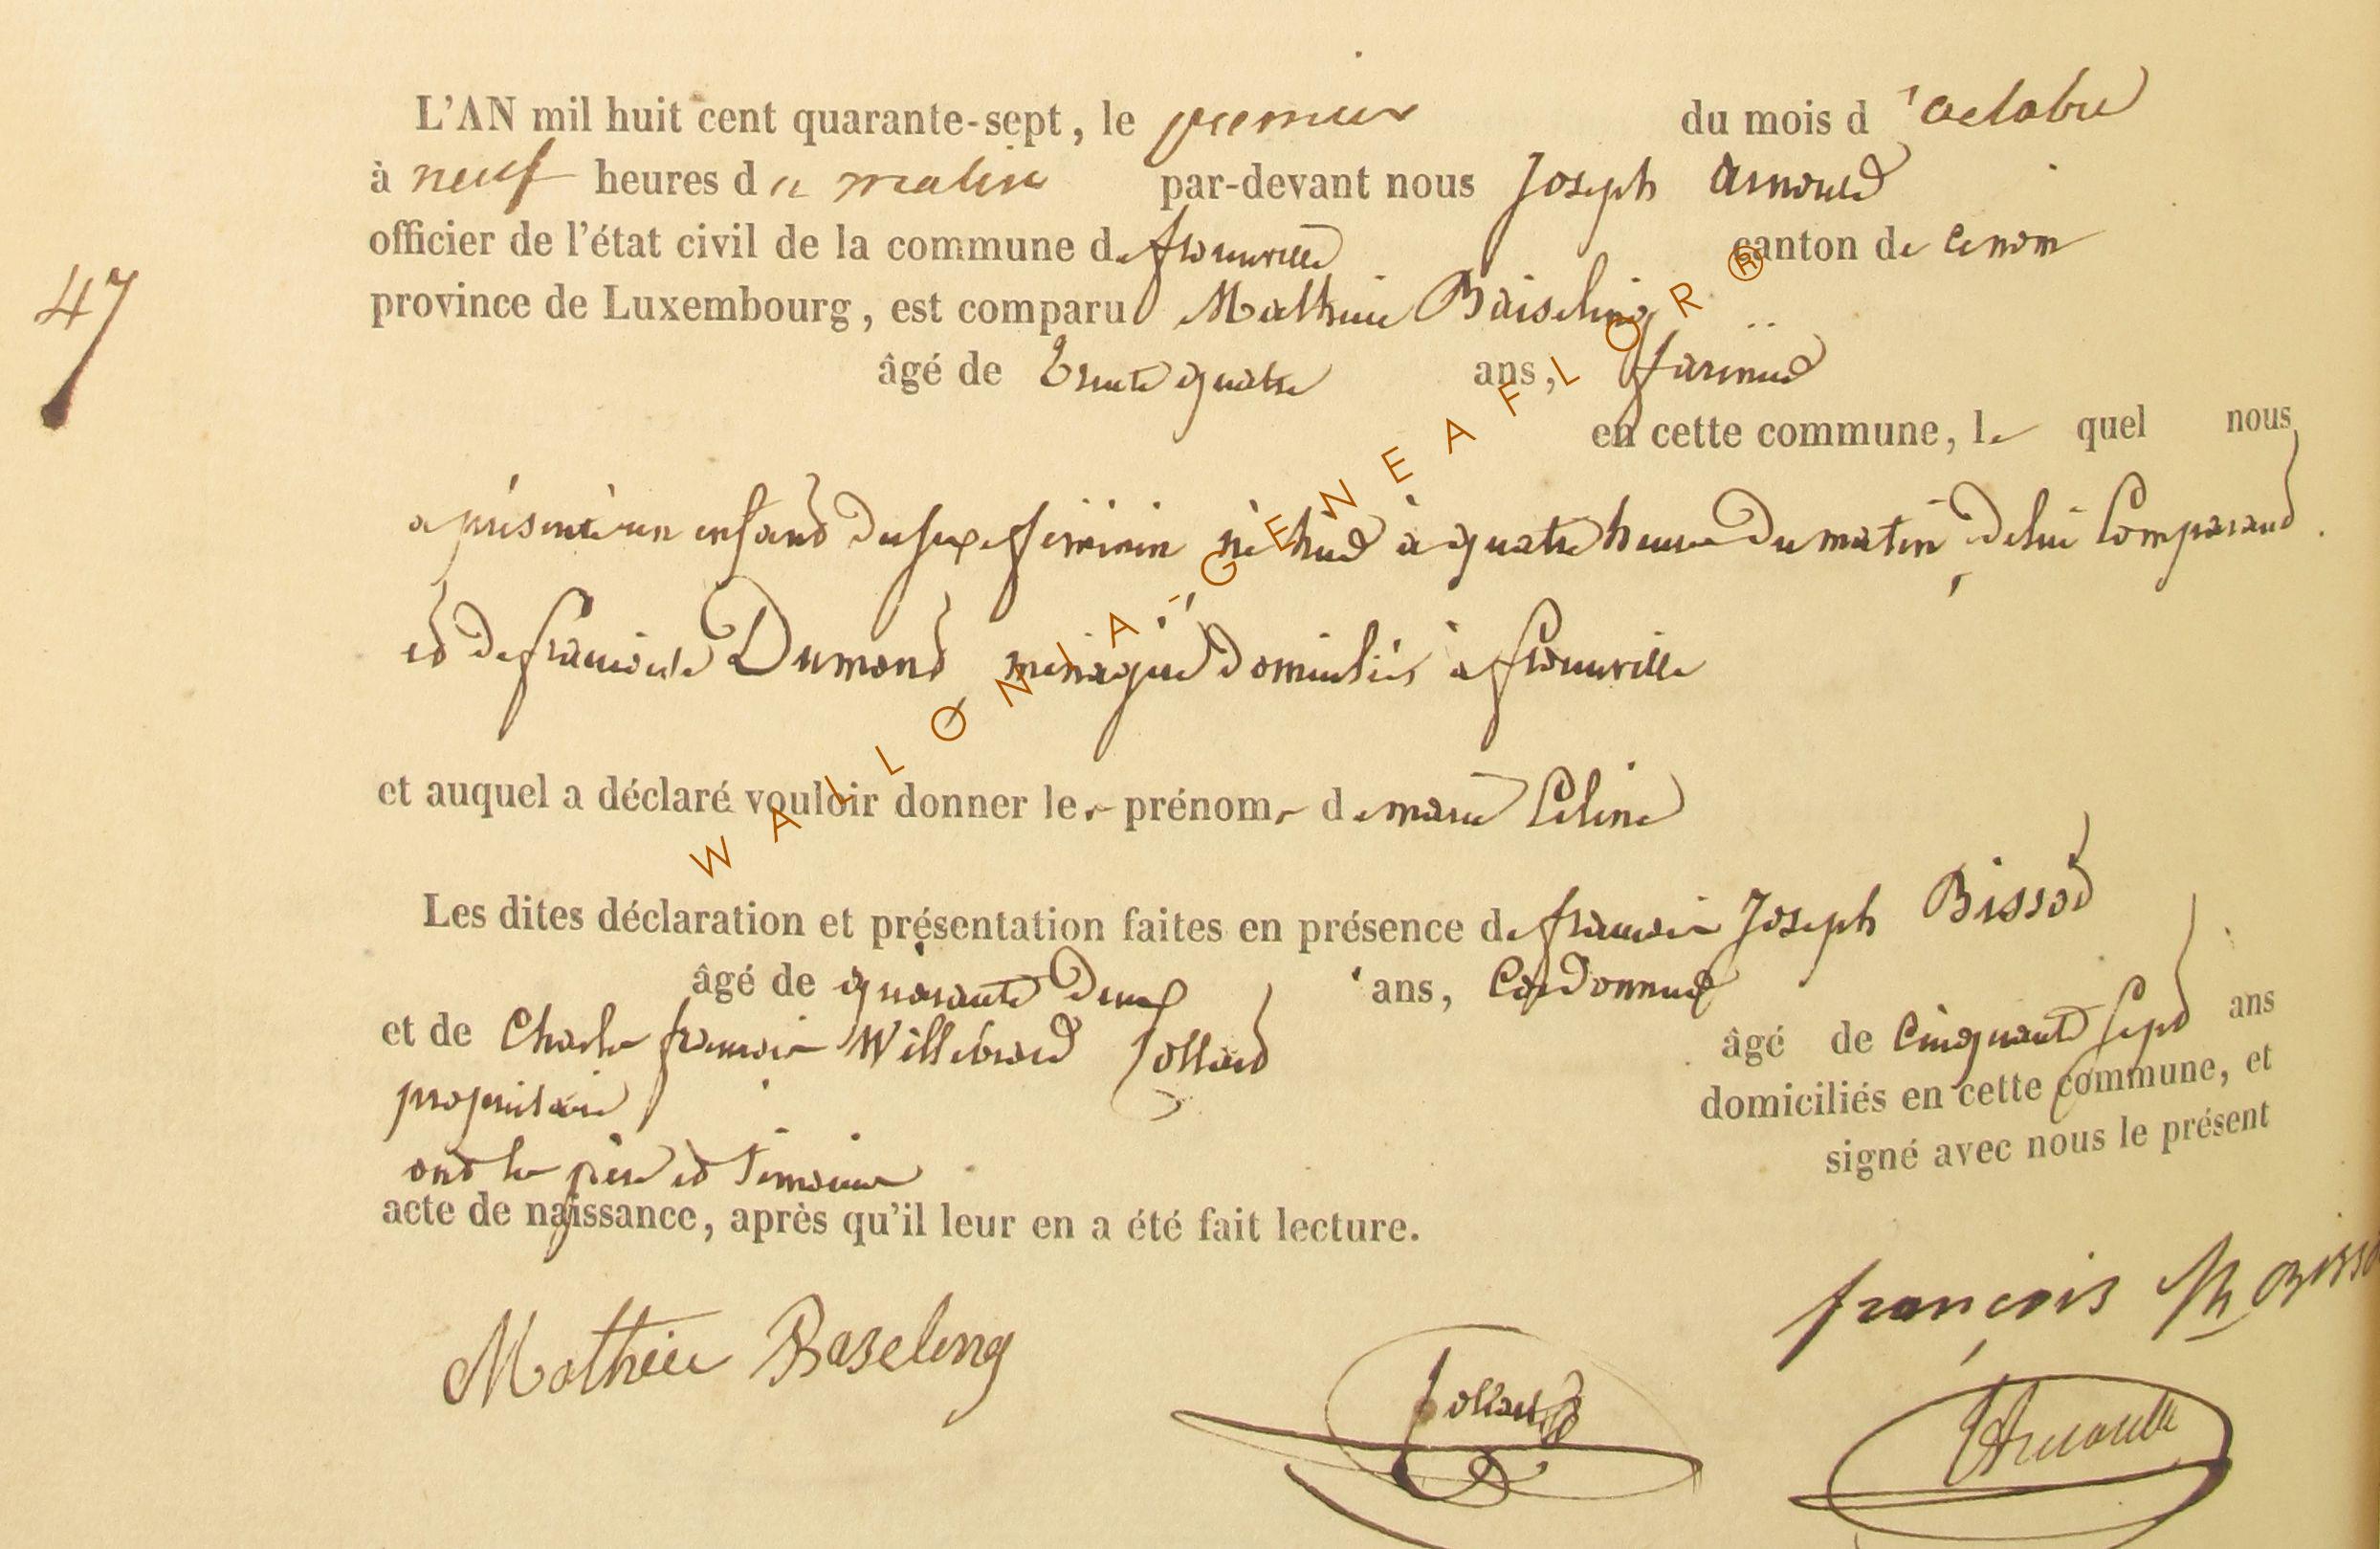 L'AN mil huit cent quarante-sept, le premier du mois d'octobre
à neuf heures du matin par-devant nous Joseph Arnould
officier de l'état civil de la commune de canton de
47
province de Luxembourg, est comparu Mathieu Baiseling
âgé de trente quatre ans,
en cette commune, le quel nous
a présenté un enfant du sexe féminin né hier à quatre heures du matin de lui Comparant
et de françoise Dumont ménagère domiciliés à
et auquel a déclaré vouloir donner les prénoms de marie Céline
Les dites déclaration et présentation faites en présence de françois Joseph Bissot
âgé de quarante deux ans, Cordonnier
et de Charles françois Willibrord Jollard âgé de Cinquante Sept ans
propriétaire domiciliés en cette commune, et
ont les père et témoins signé avec nous le présent
acte de naissance, après qu'il leur en a été fait lecture.
françois Jph Bisso
Mathieu Baseling
WALLONIA-GENEAFLOR®